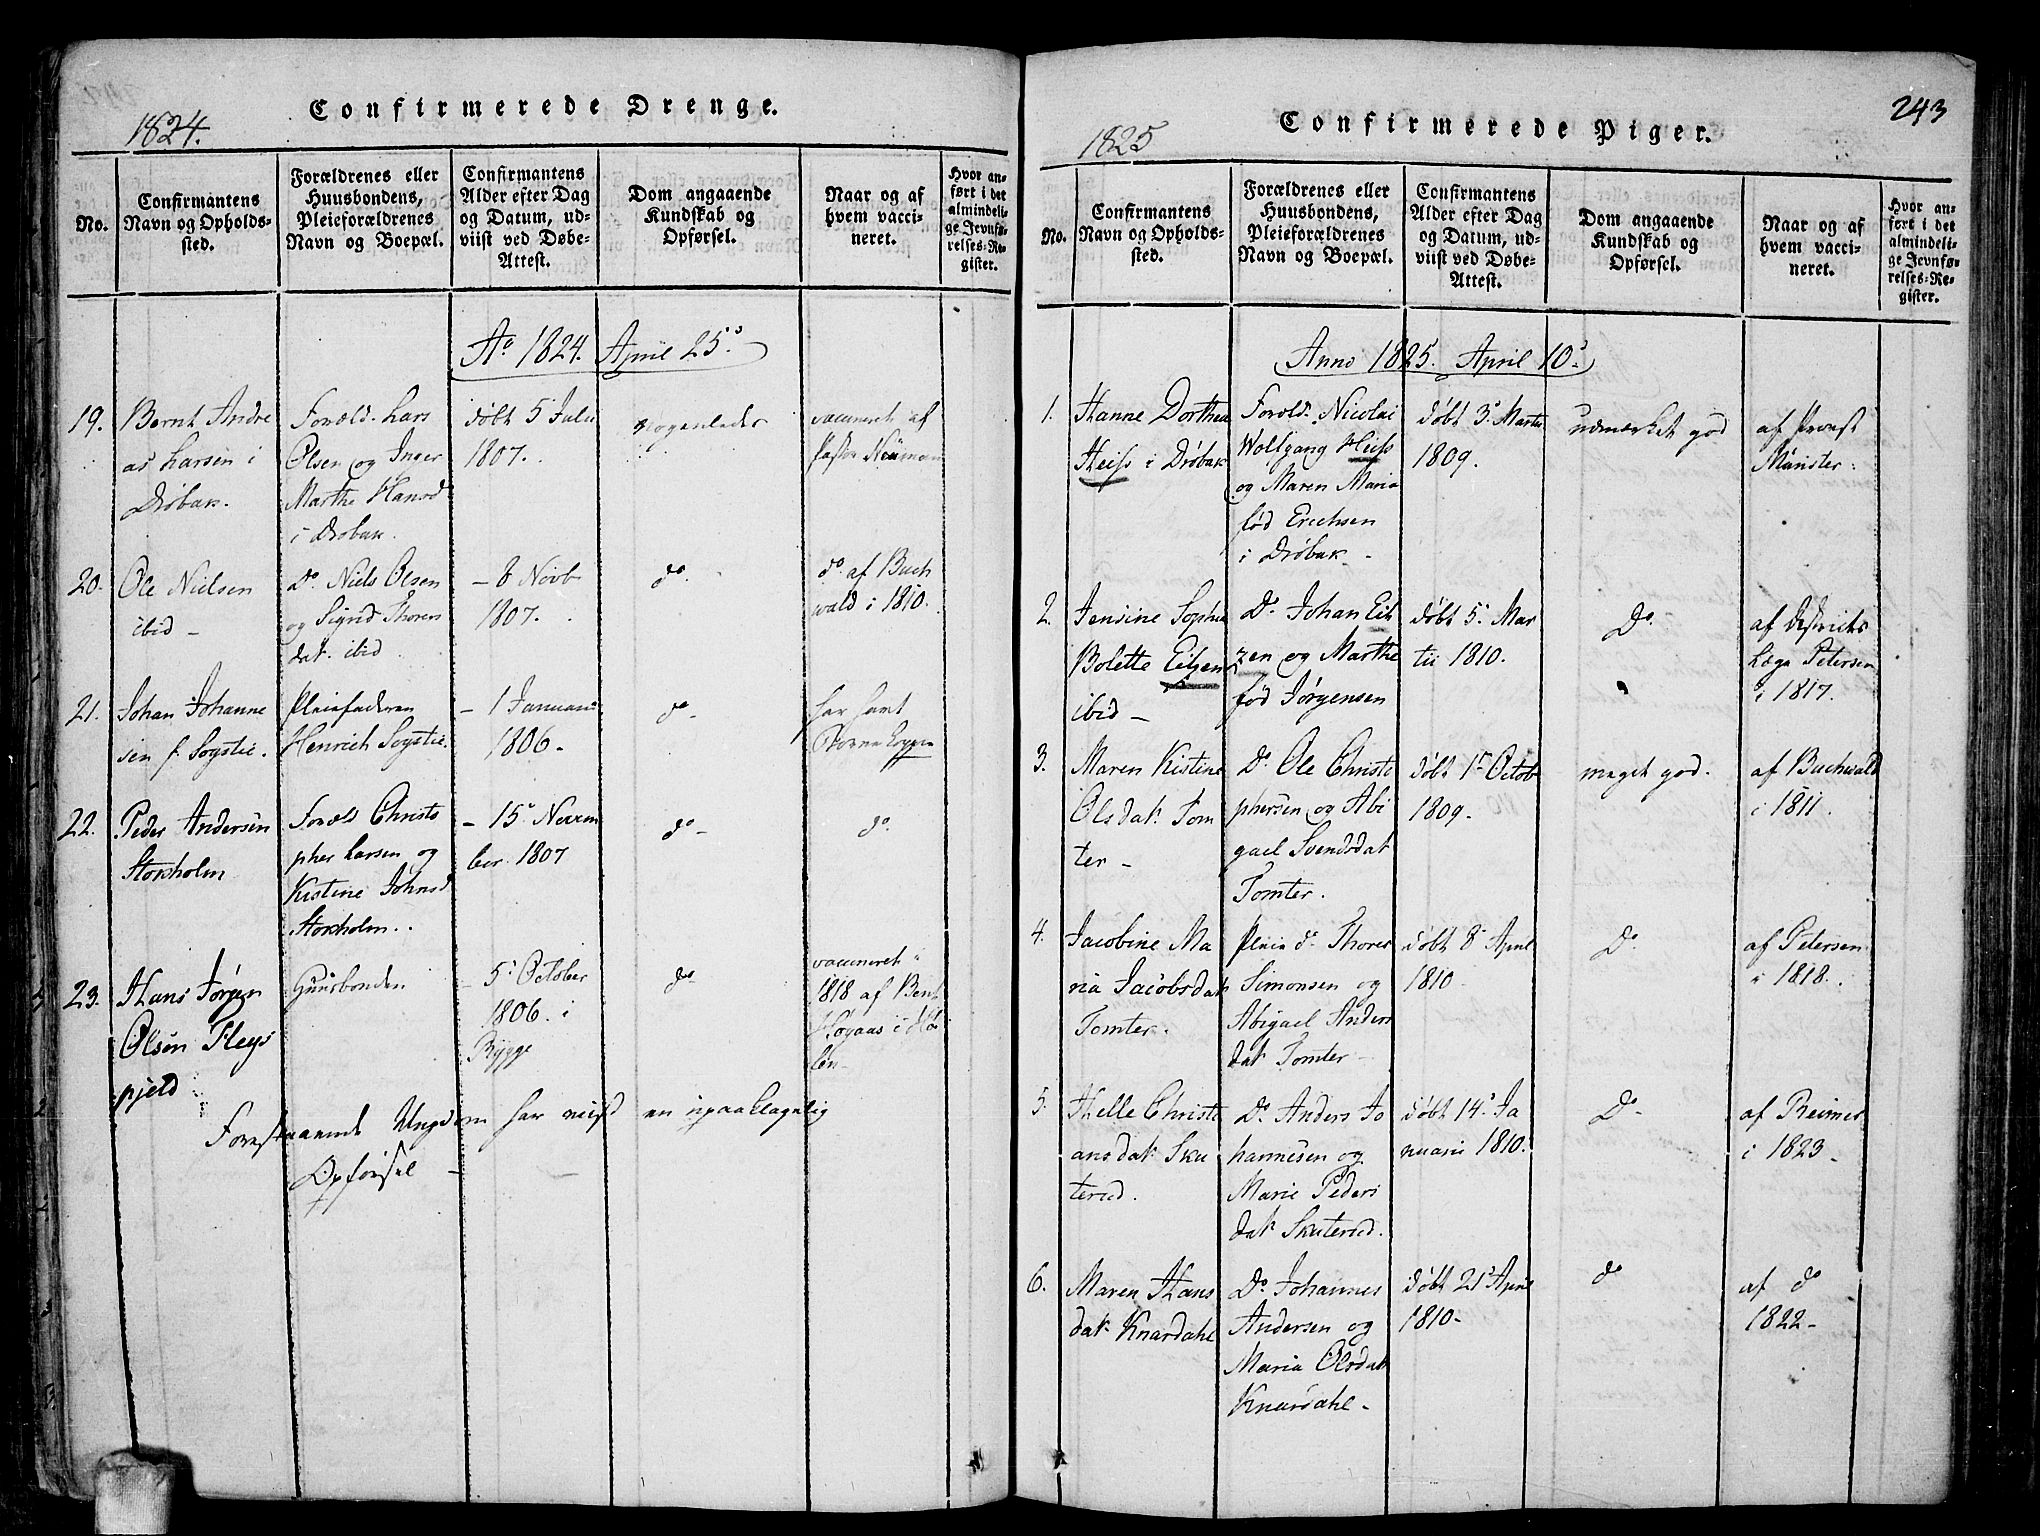 1824.
Confirmerede Drenge.
No.
Confirmantens
Navn og Opholds-
sted.
Forældrenes eller
Huusbondens,
Pleieforældrenes
Navn og Boepæl.
Confirmantens
Alder efter Dag
og Datum, ud-
viist ved Døbe-
Attest.
Dom angaaende
Kundskab og
Opførsel.
Naar og af
hvem vacci-
neret.
Hvor an-
ført i det
almindeli-
ge Jevnfø-
relses-Re-
gister.
Ao 1824. April 25.
19.
Bernt Andre
as Larsen i
Drøbak.
Foræld. Lars
Olsen og Inger
Marthe Hansd
i Drøbak.
døbt 5 Julii
1807.
nogenledes
vaccineret af
Pastor
20.
Ole Nielsen
ibid -
Do Niels Olsen
og Sigrid Thores
dat. ibid
- 8 Novb
1807.
do.
do. af Buch
wald i 1810.
21.
Johan Johanne
sen f. Sogstie.
Pleiefaderen
Henrich Sogstie.
- 1 Januarii
1806.
do
har havt
Børnekopper
22.
Peder Andersen
Stokholm
Foræld Christo
pher Larsen og
Kistine Johnsd
Stokholm.
- 15 Novem
ber 1807
do -
do.
23.
Hans Jørgen
Olsen Fleys
pjeld
Huusbonden
- 5 October
1806. i
Rygge
do
vaccineret i
1818 af Bent
Høyaas i Hø
len -
Forestaaende Ungdom har viist en upaaklagelig
Opførsel -
243
1825
Confirmerede Piger.
No.
Confirmantens
Navn og Opholds-
sted.
Forældrenes eller
Huusbondens,
Pleieforældrenes
Navn og Boepæl.
Confirmantens
Alder efter Dag
og Datum, ud-
viist ved Døbe-
Attest.
Dom angaaende
Kundskab og
Opførsel.
Naar og af
hvem vacci-
neret.
Hvor an-
ført i det
almindeli-
ge Jevnfø-
relses-Re-
gister.
Anno 1825. April 10.
1.
Hanne Dorthea
Heiss i Drøbak
Foræld. Nicolai
Wolfgang Heiss
og Maren Maria
fød Erichsen
i Drøbak -
døbt 3. Martii
1809.
udmærket god
af Provst
Münster.
2.
Jensine Sophie
Bolette Eitzen
ibid -
Do. Johan Eit
zen og Marthe
fød Jørgensen
døbt 5. Mar
tii 1810.
Do.
af Districts
Læge Petersen
i 1817.
3.
Maren Kistine
Olsdat. Tom
ter -
Do. Ole Christo
phersen og Abi
gael Svendsdat
Tomter.
døbt 1 Octob
1809.
meget god.
af Buchwald
i 1811.
4.
Jacobine Ma
ria Jacobsdat
Tomter.
Pleie do. Thores
Simonsen og
Abigael Anders
dat Tomter -
døbt 8 April
1810
Do.
af Petersen
i 1818.
5.
Helle Christi
ansdat Sku
terud.
Do. Anders Jo
hannesen og
Marie Peders
dat Skuterud.
døbt 14. Ja
nuarii 1810.
Do.
af Reimer
i 1823 -
6.
Maren Hans
dat. Knardahl
Do. Johannes
Andersen og
Maria Olsdat
Knardahl -
døbt 21 April
1810 -
do
af do
1822 -